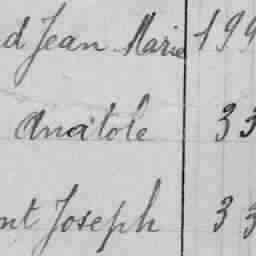 d Jean Marie 199
Anatole 33
nt Joseph 33